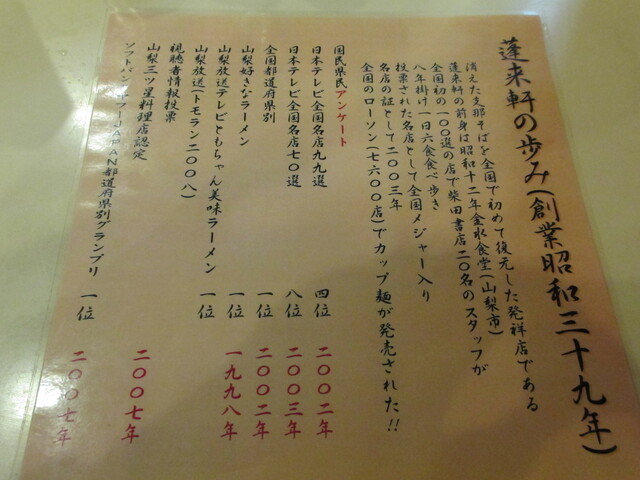 蓬来軒の歩み(創業昭和三十九年)
消えた支那そばを全国で初めて復元した発祥店である
蓬来軒の前身は昭和十二年金水食堂(山梨市)
全国初の一〇〇選の店で柴田書店二〇名のスタッフが
八年掛け一日六食食べ歩き
投票された名店として全国メジャー入り
名店の証として二〇〇三年
全国のローソン(七六〇〇店)でカップ麺が発売された!!
国民県民アンケート
日本テレビ全国名店九九選 四位 二〇〇二年
日本テレビ全国名店七〇選 八位 二〇〇三年
全国都道府県別 一位 二〇〇二年
山梨好きなラーメン 一位 一九九八年
山梨放送テレビともちゃん美味ラーメン 一位
山梨放送(トモラン二〇〇八)
視聴者情報投票
山梨三ツ星料理店認定 二〇〇七年
ソフトバンクヤフーJAPAN都道府県別グランプリ 一位 二〇〇七年